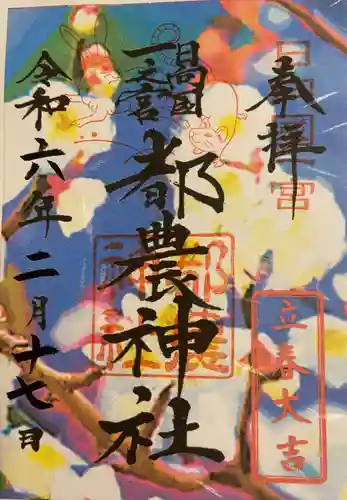 奉拝
日向国
一之宮
都農神社
令和六年二月十七日
立春大吉
都農
神社